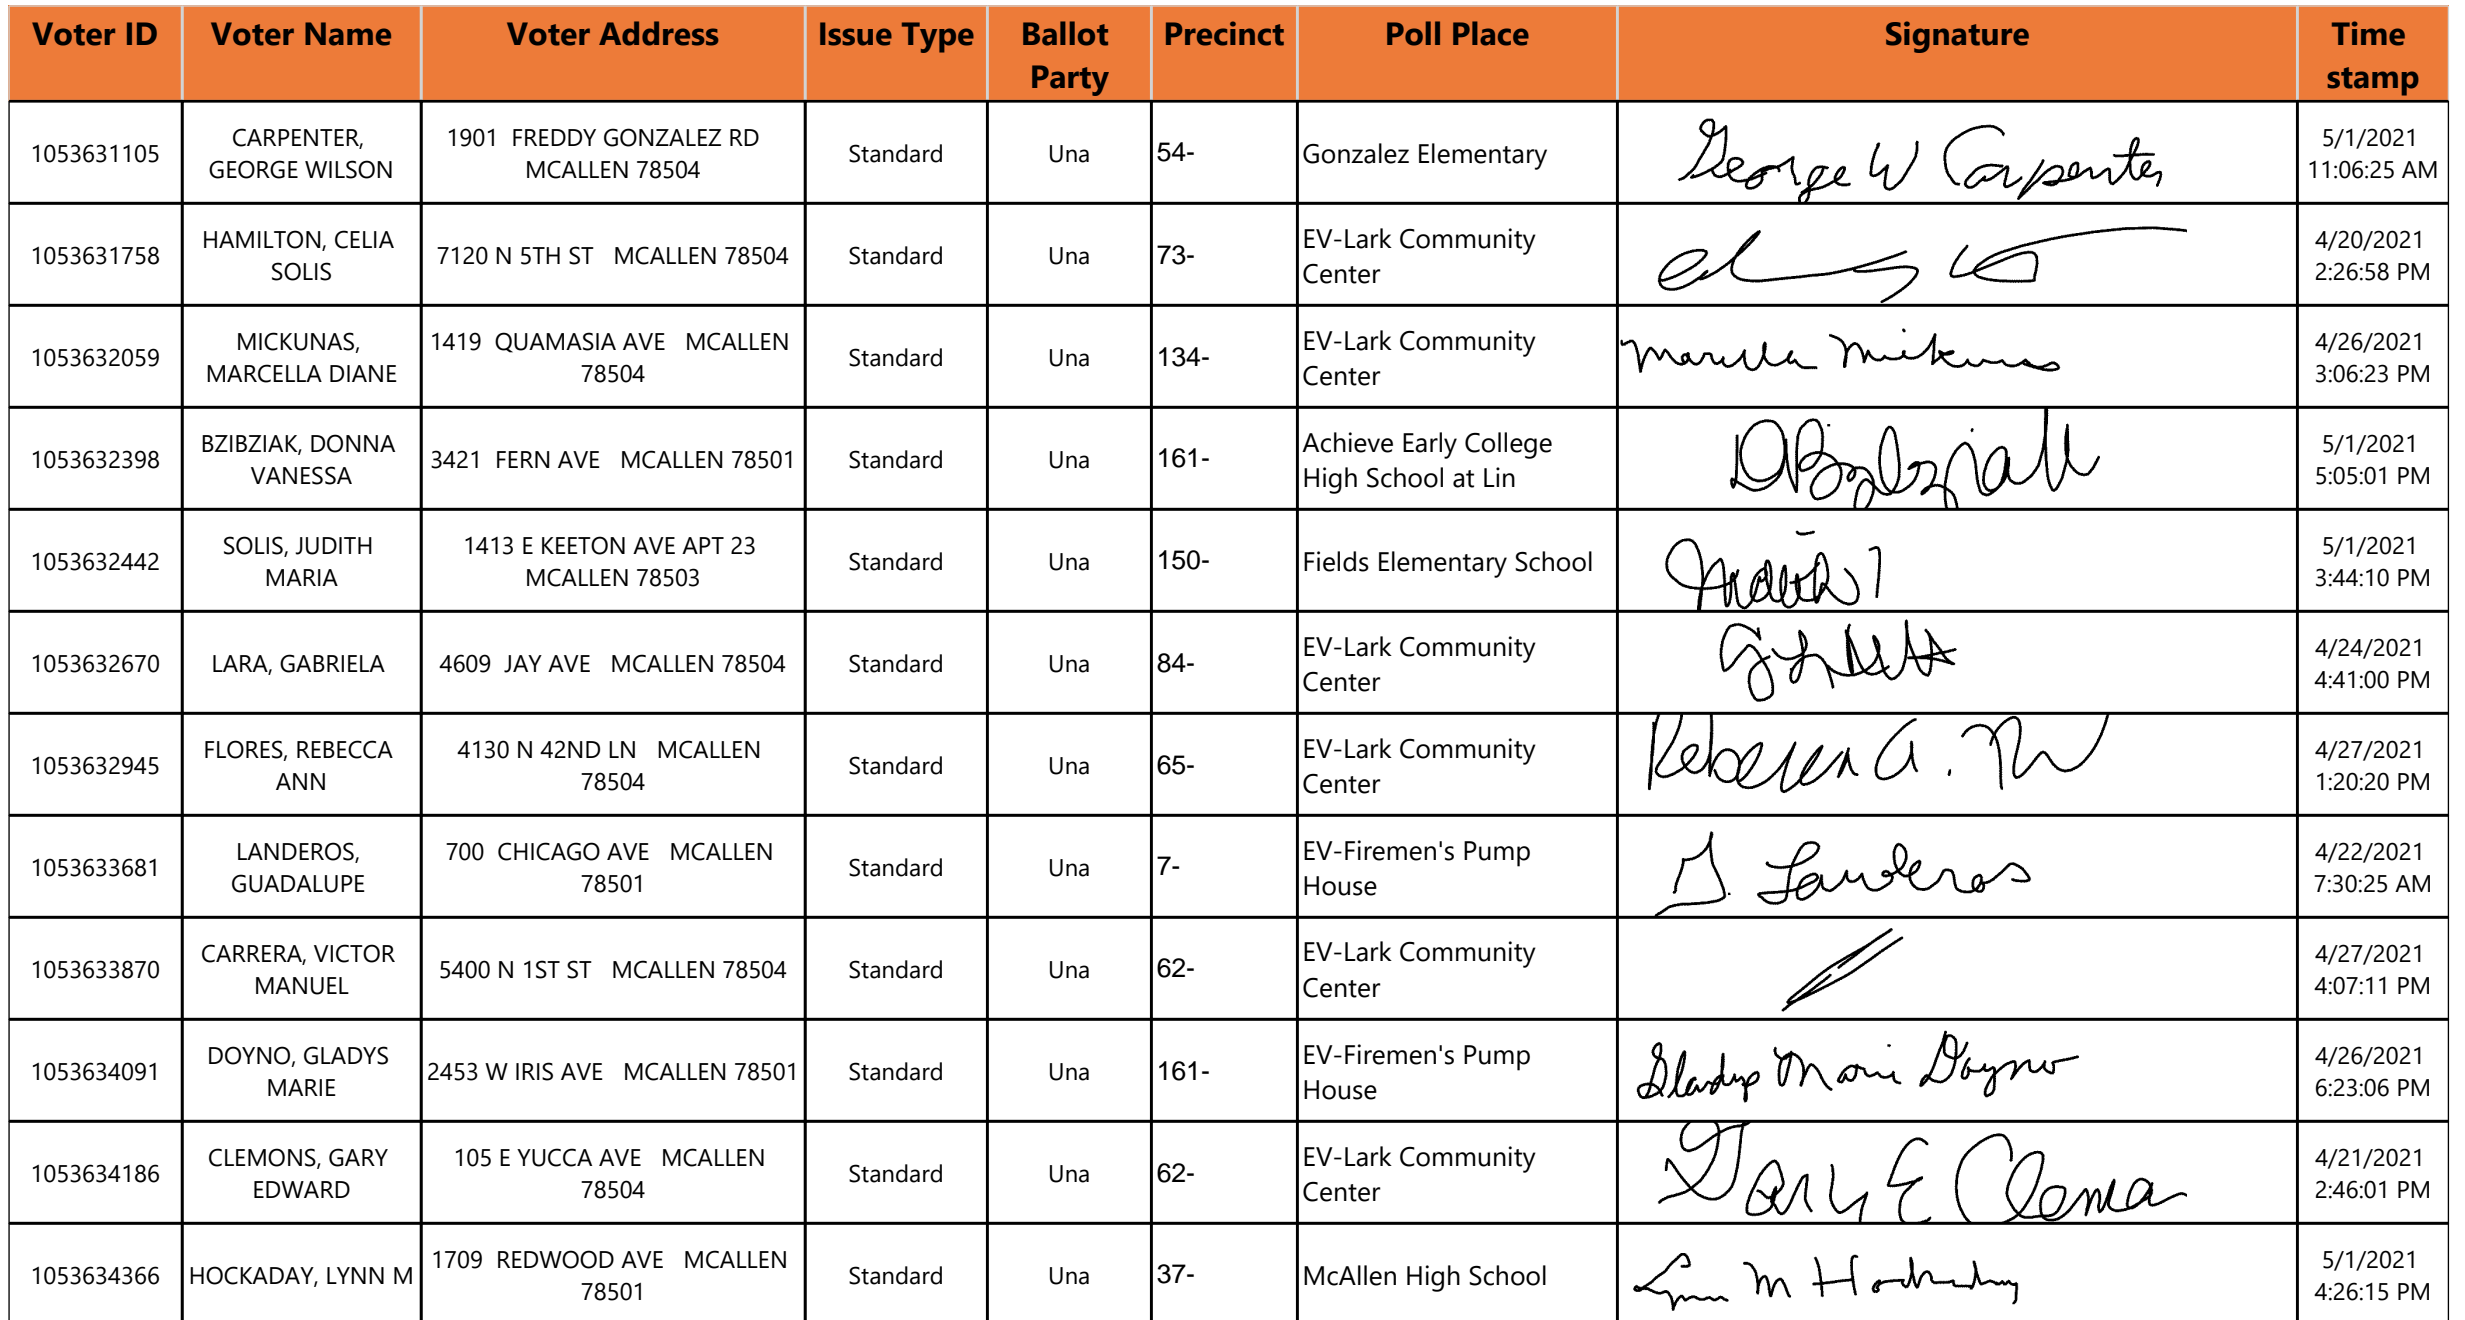 Voter ID Voter Name Voter Address Issue Type Ballot Party Precinct Poll Place Signature Time stamp
1053631105 CARPENTER, GEORGE WILSON 1901 FREDDY GONZALEZ RD MCALLEN 78504 Standard Una 54- Gonzalez Elementary George W Carpenter 5/1/2021 11:06:25 AM
1053631758 HAMILTON, CELIA SOLIS 7120 N 5TH ST MCALLEN 78504 Standard Una 73- EV-Lark Community Center 4/20/2021 2:26:58 PM
1053632059 MICKUNAS, MARCELLA DIANE 1419 QUAMASIA AVE MCALLEN 78504 Standard Una 134- EV-Lark Community Center Marcella Mickunas 4/26/2021 3:06:23 PM
1053632398 BZIBZIAK, DONNA VANESSA 3421 FERN AVE MCALLEN 78501 Standard Una 161- Achieve Early College High School at Lin DBzibziak 5/1/2021 5:05:01 PM
1053632442 SOLIS, JUDITH MARIA 1413 E KEETON AVE APT 23 MCALLEN 78503 Standard Una 150- Fields Elementary School Judith 5/1/2021 3:44:10 PM
1053632670 LARA, GABRIELA 4609 JAY AVE MCALLEN 78504 Standard Una 84- EV-Lark Community Center 4/24/2021 4:41:00 PM
1053632945 FLORES, REBECCA ANN 4130 N 42ND LN MCALLEN 78504 Standard Una 65- EV-Lark Community Center Rebecca A. 4/27/2021 1:20:20 PM
1053633681 LANDEROS, GUADALUPE 700 CHICAGO AVE MCALLEN 78501 Standard Una 7- EV-Firemen's Pump House G. Landeros 4/22/2021 7:30:25 AM
1053633870 CARRERA, VICTOR MANUEL 5400 N 1ST ST MCALLEN 78504 Standard Una 62- EV-Lark Community Center 4/27/2021 4:07:11 PM
1053634091 DOYNO, GLADYS MARIE 2453 W IRIS AVE MCALLEN 78501 Standard Una 161- EV-Firemen's Pump House Gladys Marie Doyno 4/26/2021 6:23:06 PM
1053634186 CLEMONS, GARY EDWARD 105 E YUCCA AVE MCALLEN 78504 Standard Una 62- EV-Lark Community Center Gary E Clema 4/21/2021 2:46:01 PM
1053634366 HOCKADAY, LYNN M 1709 REDWOOD AVE MCALLEN 78501 Standard Una 37- McAllen High School Lynn M Hockaday 5/1/2021 4:26:15 PM